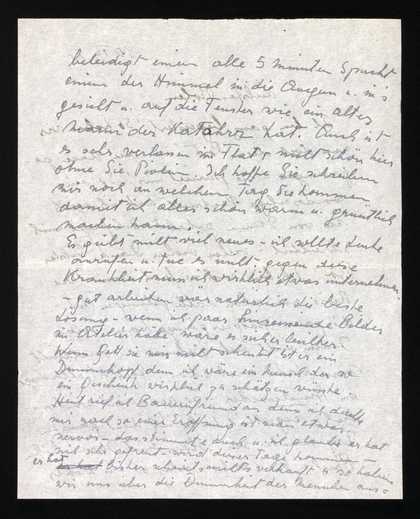 beleidigt einem alle 5 minuten spuckt
einem der Himmel in die Augen u. in's
gesicht u. auf die Fenster wie ein altes
der Katahrr hat. Auch ist
es sehr verlassen im That, nicht schön hier
ohne Sie Ich hoffe Sie schreiben
mir noch an welchem Tag Sie kommen
damit ich alles schön warm u.
machen kann.
Es giebt nicht viel neues – ich sollte
u. tue es nicht – gegen diese
Krankheit muss ich wirklich etwas unternehmen
– gut arbeiten wär natürlich die beste
Lösung – wenn ich paar Bilder
im Atelier habe wäre es sicher leichter.
Wenn Gott sie mir nicht schenkt ist er ein
Dummkopf denn ich wäre ein Mensch der so
ein Geschenk wirklich zu schätzen wüsste.
Heut rief ich an denn ich dachte
mir nach so einer Eröffnung ist man etwas
nervös – das stimmte auch u. ich glaube er hat
sich sehr gefreut – wird dieser Tage kommen –
er hat bisher nichts verkauft u. so haben
wir uns über die Dummheit der Menschen aus-